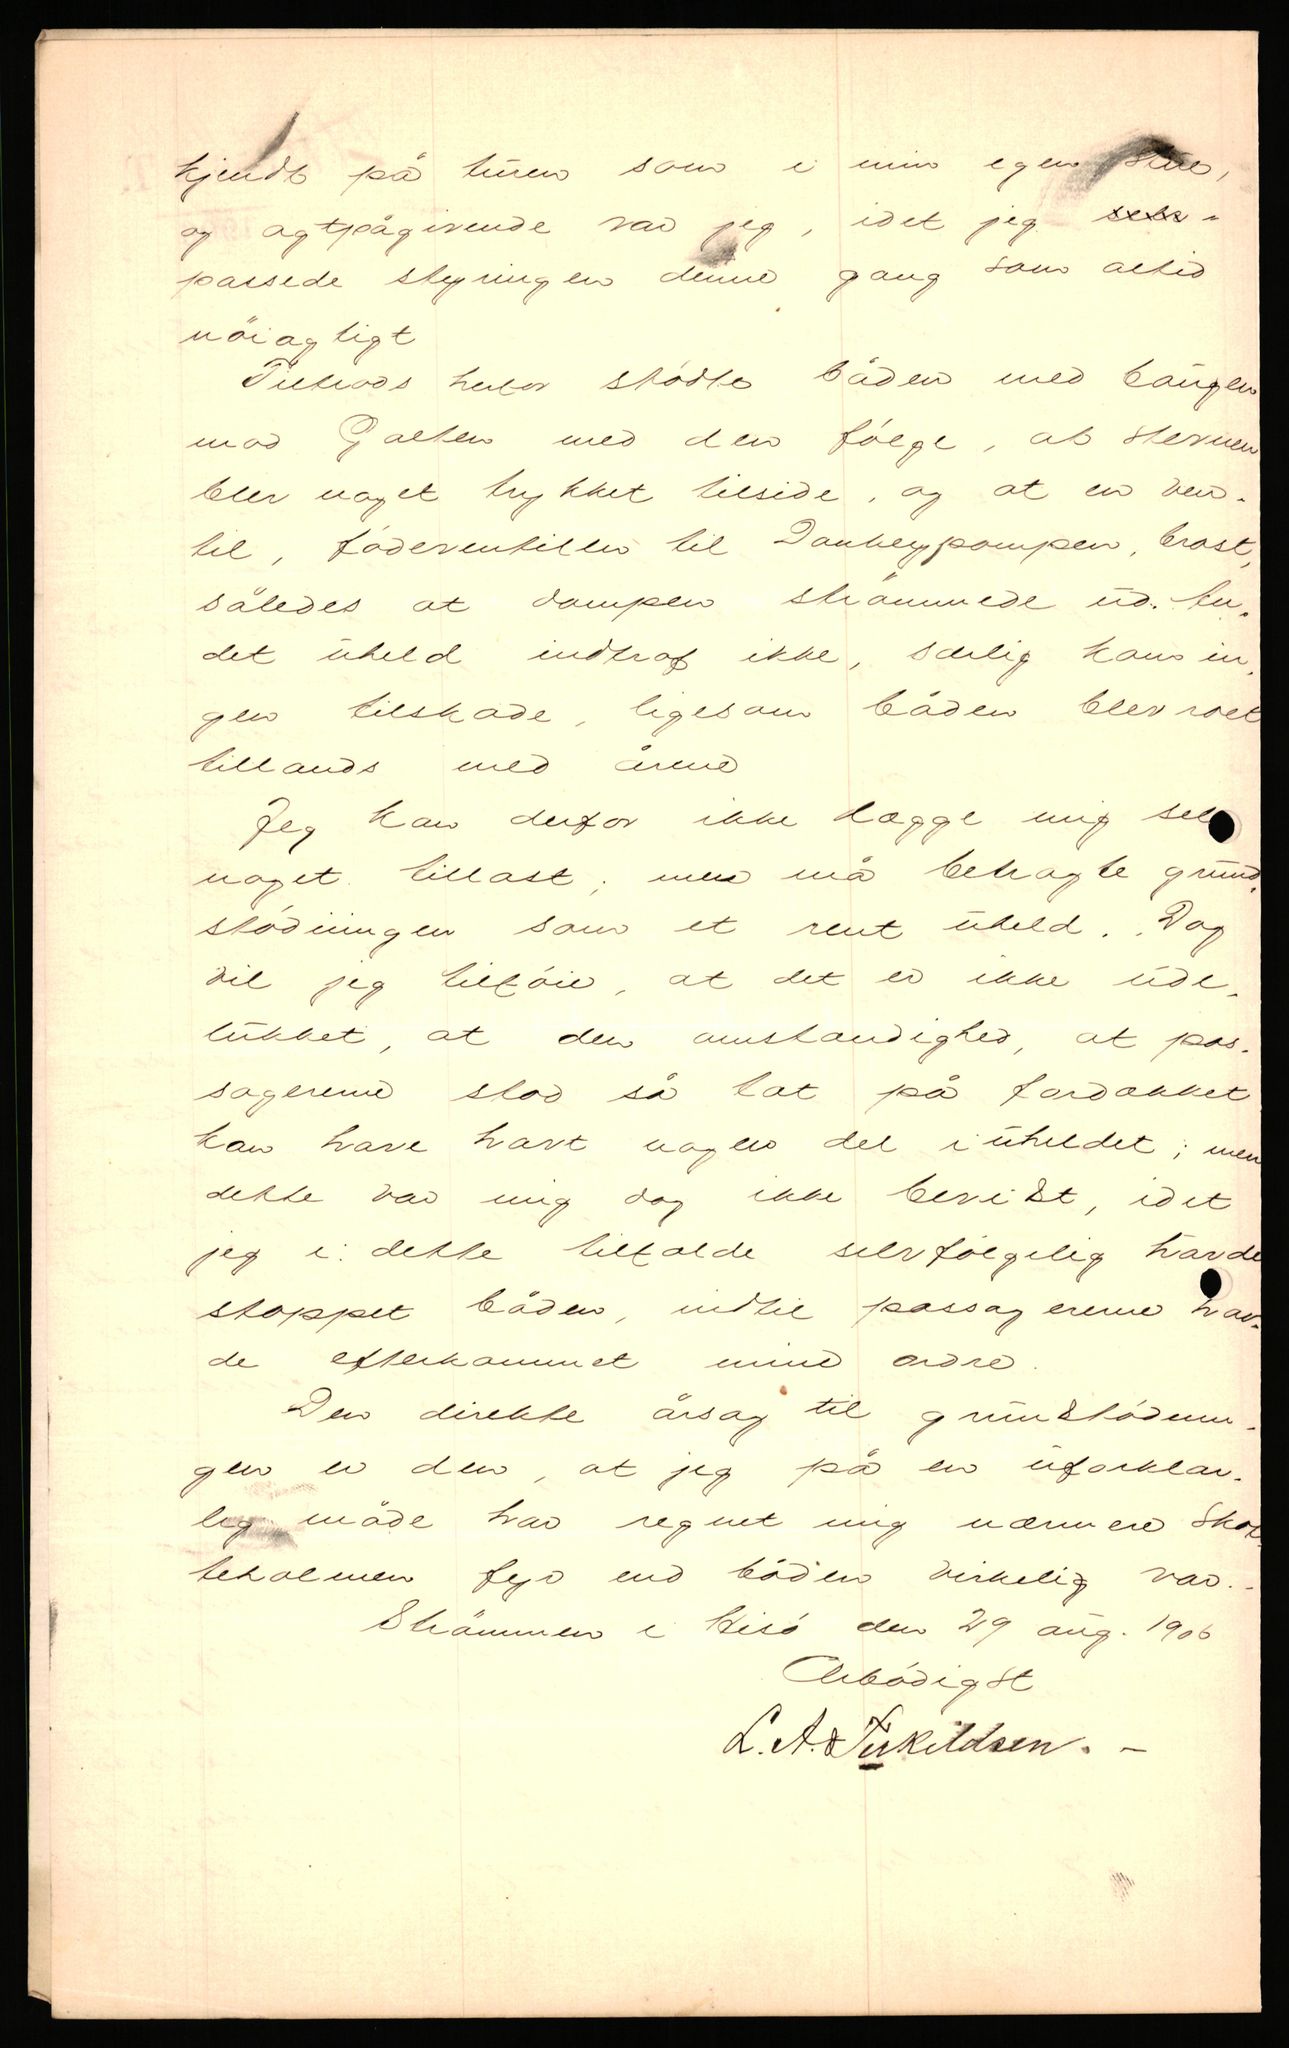 kjendt på turen som i min egen stue,
og agtpågivende var jeg, idet jeg
passede styringen denne gang som altid
nöiagtigt
Tiltrods herfor stödte båden med baugen
mod Galten med den fölge, at stevnen
blev noget trykket tilside, og at en ven-
til, födeventilen til Donkeypompen, brast,
således at dampen strömmede ud. An-
det uheld indtraf ikke, særlig kom in-
gen tilskade, ligesom båden blev roet
tillands med årene
Jeg kan derfor ikke lægge mig selv
noget tillast; men må betragte grund-
stödningen som et rent uheld. Dog
vil jeg tilföie, at det er ikke ude-
lukket, at den omstændighed, at pas-
sagererne stod så tæt på fordækket
kan have havt nogen del i uheldet; men
dette var mig dog ikke bevist, idet
jeg i dette tilfælde selvfölgelig havde
stoppet båden, indtil passagererne hav-
de efterkommet mine ordre.
Den direkte årsag til grundstödnin-
gen er den, at jeg på en uforklar-
lig måde har regnet mig nærmere Skot-
teholmen fyr end båden virkelig var.-
Strömmen i Hisö den 29 aug. 1906
Ærbödigst
L. A. Terkildsen. -